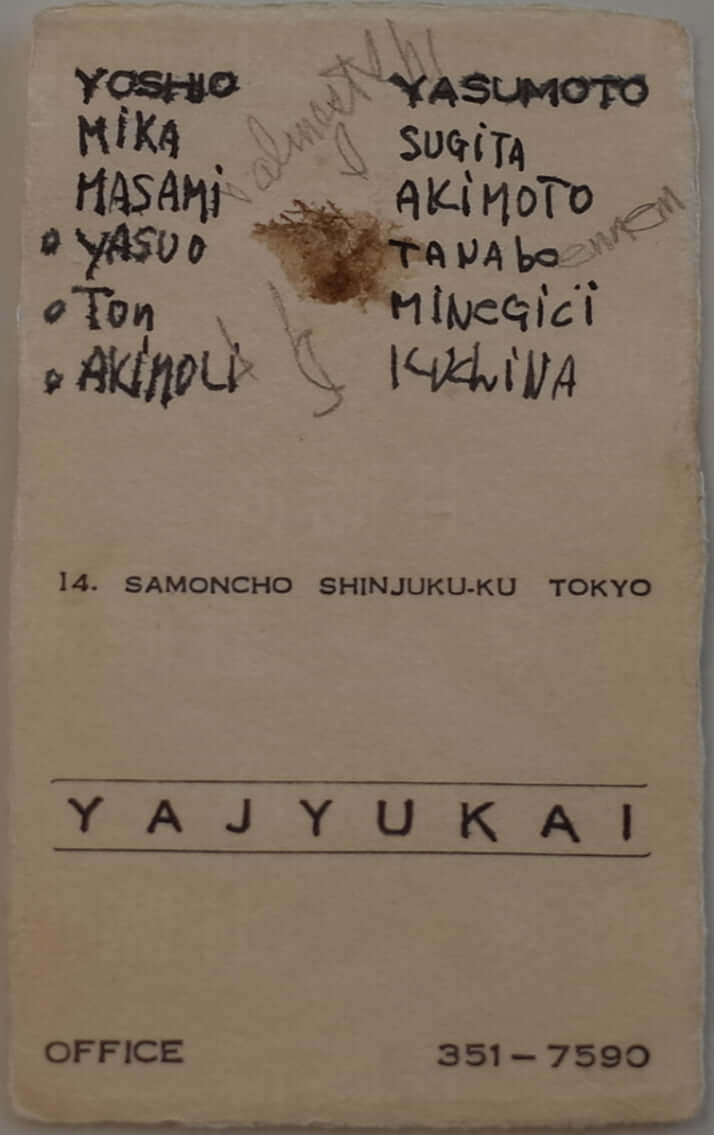 YOSHIO YASUMOTO
MiKA SUGiTA
MASAMi AKiMOTO
YASUO TANAbe
Ton MiNeGiCi
AKiMOLi KiKhiNA
14. SAMONCHO SHINJUKU-KU TOKYO
YAJYUKAI
OFFICE 351-7590